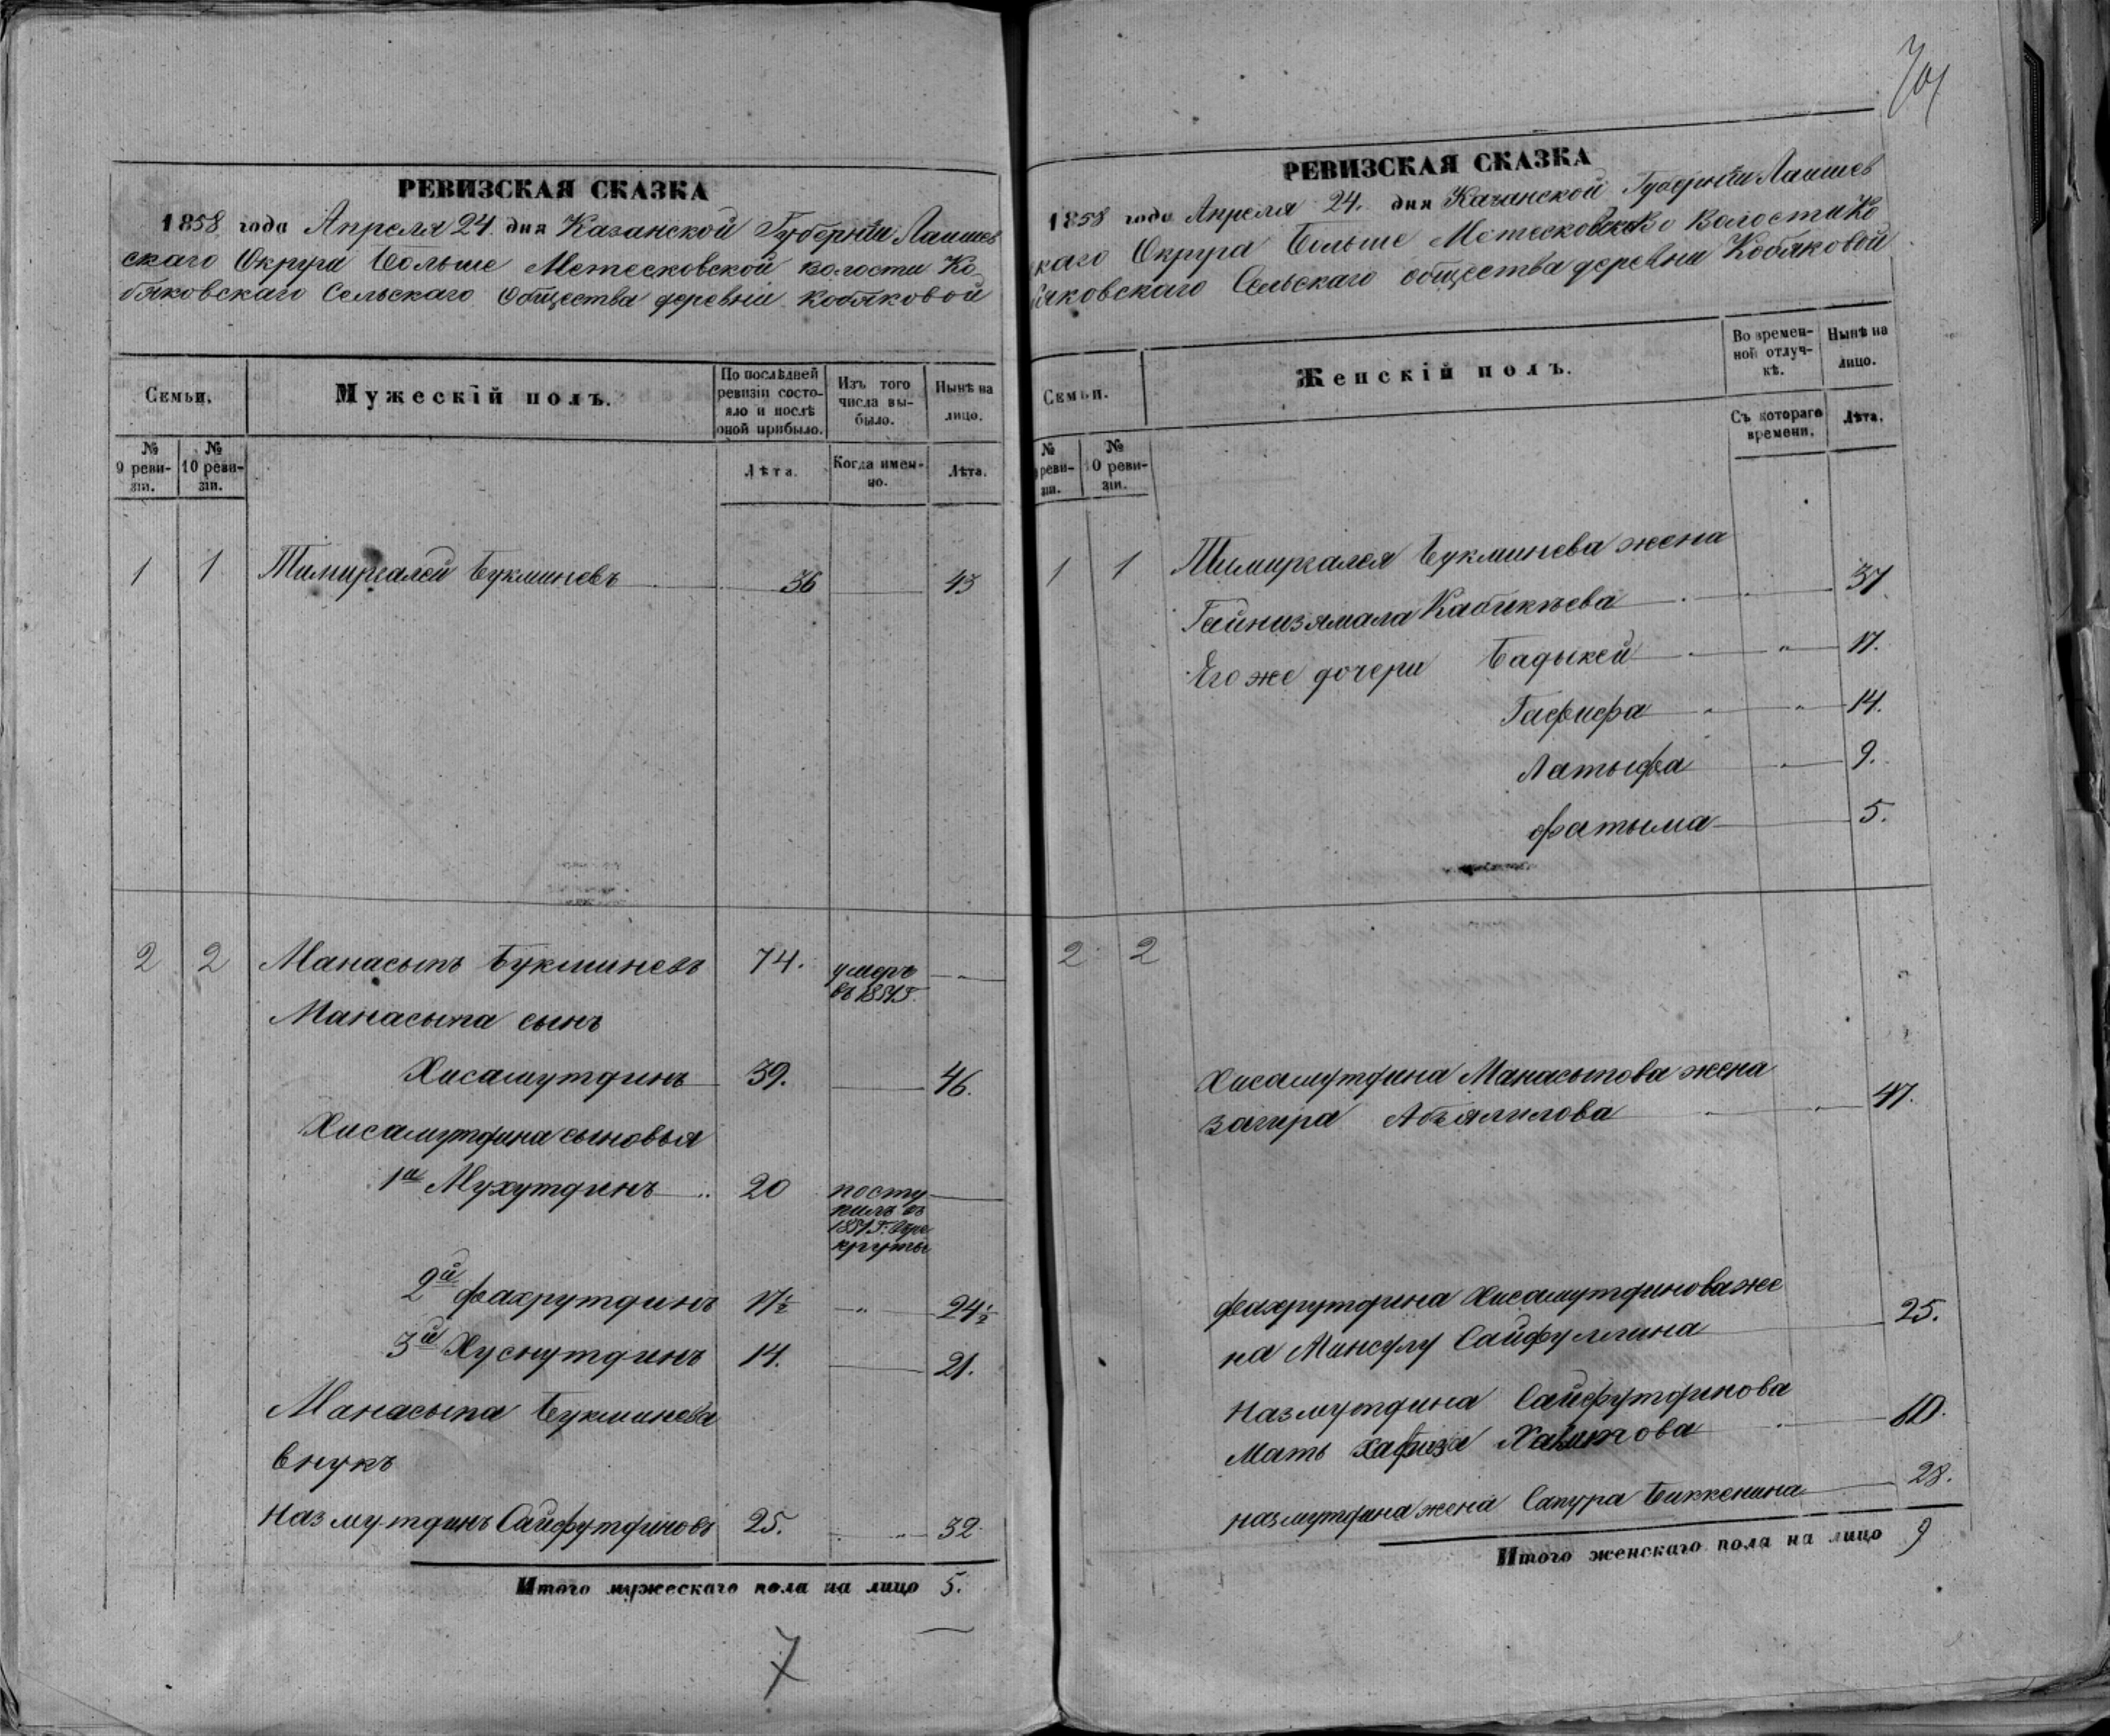 РЕВИЗСКАЯ СКАЗКА
1858 года Апреля 24. дня Казанской Губернiи Лаишев
скаго Округа Больше Метесковской волости Ко
бяковскаго Сельскаго Общества деревни Кобяковой
Семьи.
Мужескiй полъ.
По послѣдней
ревизiи состо-
яло и послѣ
оной прибыло.
Изъ того
числа вы-
было.
Нынѣ на
лицо.
№
9 реви-
зiи.
№
10 реви-
зiи.
Лѣта.
Когда имен-
но.
Лѣта.
1 1 Тимиргалей Букминевъ 36 43
2 2 Манасыпъ Букминевъ 74. умеръ
въ 1857 г.
Манасыпа сынъ
Хисамутдинъ 39. 46.
Хисамутдина сыновья
1й Мухутдинъ 20 посту
пилъ въ
1857 г. въ ре
круты
2й Фахрутдинъ 17½ " 24½
3й Хуснутдинъ 14. 21.
Манасыпа Букминева
внукъ
Назмутдинъ Сайфутдиновъ 25. " 32.
Итого мужескаго пола на лицо 5.
7
РЕВИЗСКАЯ СКАЗКА
1858 года Апреля 24. дня Казанской Губернiи Лаишев
скаго Округа Больше волости Ко
бяковскаго Сельскаго общества деревни Кобяковой
Семьи.
Женскiй полъ.
Во времен-
ной отлуч-
кѣ.
Нынѣ на
лицо.
№
реви-
зiи.
№
10 реви-
зiи.
Съ котораго
времени.
Лѣта.
1 1 Тимиргалея Букминева жена
Гайнизямала 37
Его же дочери Бадыкей " 17.
Гафифа " " 14.
Латыфа " 9.
Фатыма 5.
2 2
Хисамутдина Манасыпова жена
Загира Абзялилова " 47.
Фахрутдина Хисамутдинова же
на Минсулу Сайфуллина 25.
Назмутдина Сайфутдинова
Мать Хафиза
Назмутдина жена Сапура Биккенина 28.
Итого женскаго пола на лицо 9